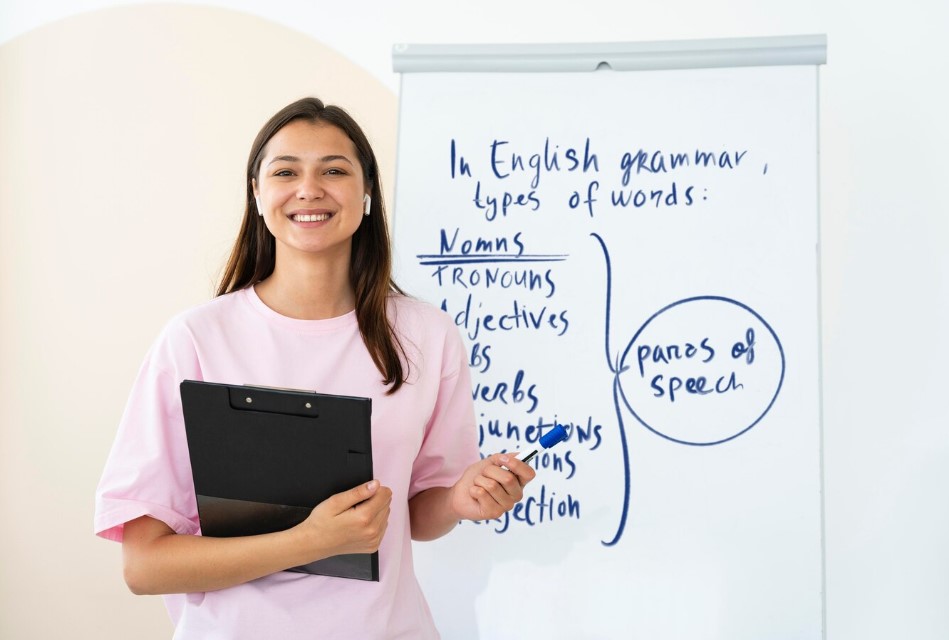 In English grammar,
types of words:
Nomns
PRONOUNS
Adjectives
BS
verbs
junctions
sitions
jection
parts of
speech